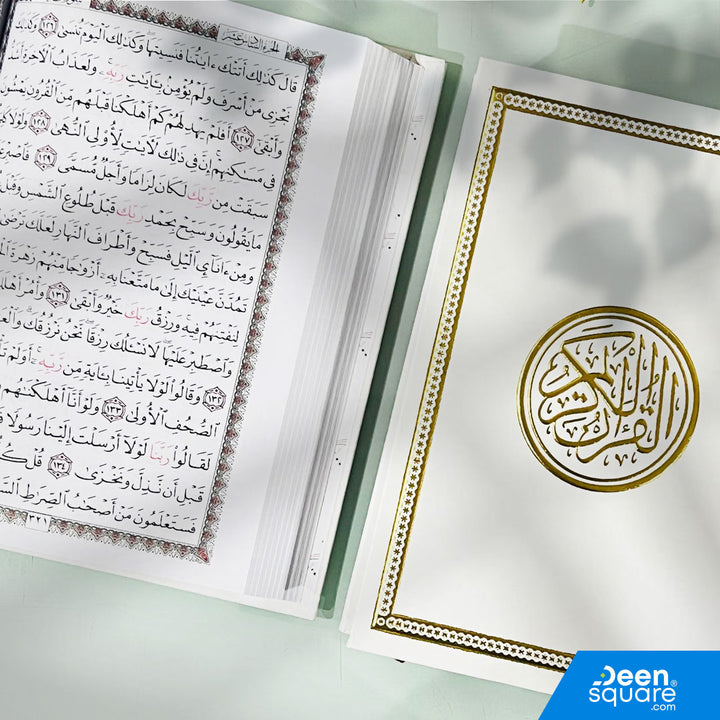 الجزء السادس عشر
قَالَ كَذَٰلِكَ أَتَتْكَ ءَايَٰتُنَا فَنَسِيتَهَا ۖ وَكَذَٰلِكَ ٱلْيَوْمَ تُنسَىٰ ١٢٦
نَجْزِى مَنْ أَسْرَفَ وَلَمْ يُؤْمِنۢ بِـَٔايَٰتِ رَبِّهِۦ ۚ وَلَعَذَابُ ٱلْـَٔاخِرَةِ
وَأَبْقَىٰٓ ١٢٧ أَفَلَمْ يَهْدِ لَهُمْ كَمْ أَهْلَكْنَا قَبْلَهُم مِّنَ ٱلْقُرُونِ يَمْشُونَ
فِى مَسَٰكِنِهِمْ ۗ إِنَّ فِى ذَٰلِكَ لَـَٔايَٰتٍ لِّأُو۟لِى ٱلنُّهَىٰ ١٢٨ وَلَوْلَا
سَبَقَتْ مِن رَّبِّكَ لَكَانَ لِزَامًا وَأَجَلٌ مُّسَمًّى ١٢٩ فَٱصْبِرْ
مَا يَقُولُونَ وَسَبِّحْ بِحَمْدِ رَبِّكَ قَبْلَ طُلُوعِ ٱلشَّمْسِ وَقَبْلَ
وَمِنْ ءَانَآئِ ٱلَّيْلِ فَسَبِّحْ وَأَطْرَافَ ٱلنَّهَارِ لَعَلَّكَ تَرْضَىٰ
تَمُدَّنَّ عَيْنَيْكَ إِلَىٰ مَا مَتَّعْنَا بِهِۦٓ أَزْوَٰجًا مِّنْهُمْ زَهْرَةَ
لِنَفْتِنَهُمْ فِيهِ ۚ وَرِزْقُ رَبِّكَ خَيْرٌ وَأَبْقَىٰ ١٣١ وَأْمُرْ أَهْلَكَ
وَٱصْطَبِرْ عَلَيْهَا ۖ لَا نَسْـَٔلُكَ رِزْقًا ۖ نَّحْنُ نَرْزُقُكَ ۗ
١٣٢ وَقَالُوا۟ لَوْلَا يَأْتِينَا بِـَٔايَةٍ مِّن رَّبِّهِۦٓ ۚ أَوَلَمْ
ٱلصُّحُفِ ٱلْأُولَىٰ ١٣٣ وَلَوْ أَنَّآ أَهْلَكْنَٰهُم
لَقَالُوا۟ رَبَّنَا لَوْلَآ أَرْسَلْتَ إِلَيْنَا رَسُولًا
قَبْلِ أَن نَّذِلَّ وَنَخْزَىٰ ١٣٤ قُلْ
فَسَتَعْلَمُونَ مَنْ أَصْحَٰبُ ٱلصِّرَٰطِ
٣٢١
القرآن الكريم
Deen®
square
.com